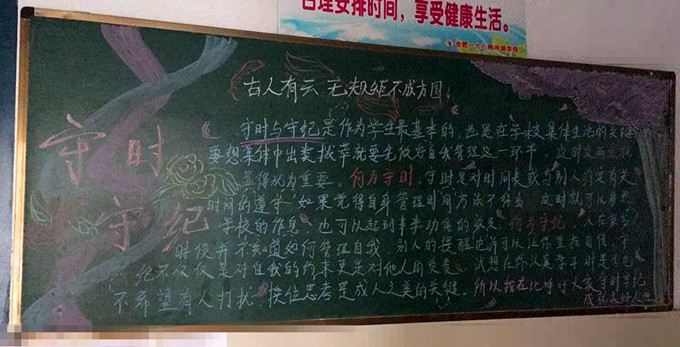 合理安排时间，享受健康生活。
古人有云 无规矩不成方圆
守时
守纪
守时与守纪是作为学生最基本的，也是在学校集体生活的关键
要想集体中出类拔萃就要先做好自我管理这一环节
显得尤为重要。何为守时，守时是对时间
时间的遵守 如果觉得自身管理时间方法不得当
学校的作息，也可以起到事半功倍的效果。何为守纪
时候并不知道如何管理自我，别人的提醒
纪不仅仅是对自我的约束更是对他人的负责，试想在你认真学习时是否也
不希望有人打扰，换位思考是成人之美的关键。所以我在此呼吁大家守时守纪